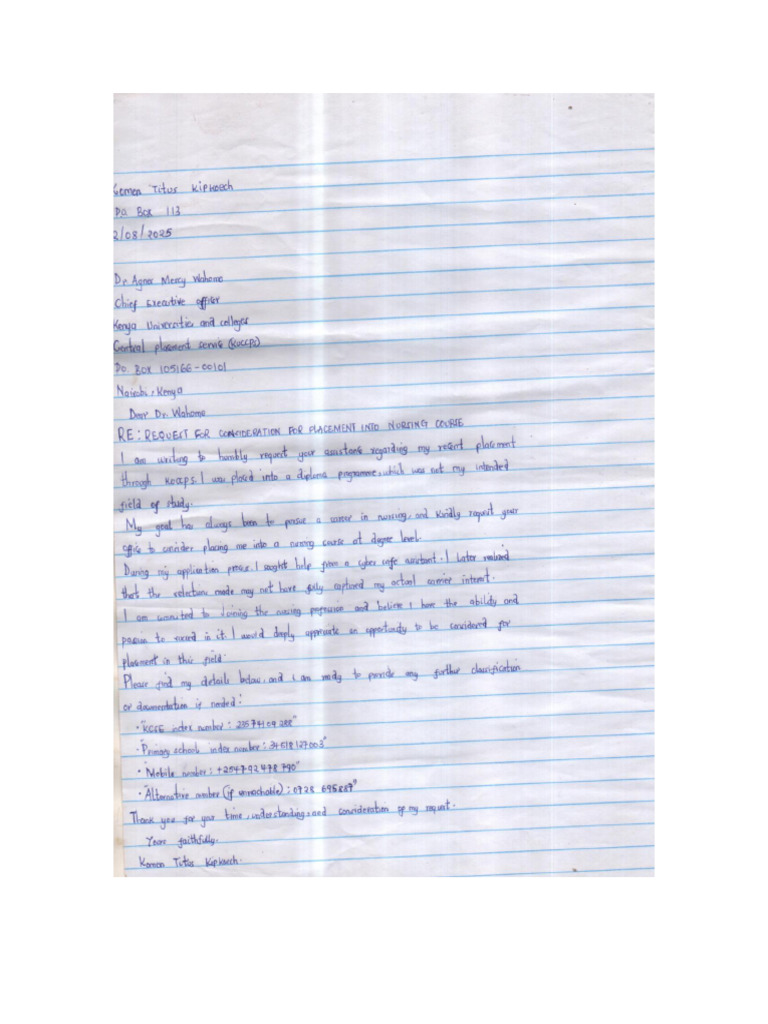 Komen Titus Kipkoech
P.O. Box 113
2/08/2025
Dr. Agnes Mercy Wahome
Chief Executive officer
Kenya Universities and colleges
Central placement service (KUCCPS)
P.O. BOX 105166-00101
Nairobi, Kenya
Dear Dr. Wahome
RE: REQUEST FOR CONSIDERATION FOR PLACEMENT INTO NURSING COURSE
I am writing to humbly request your assistance regarding my recent placement
through KUCCPS. I was placed into a diploma programme, which was not my intended
field of study.
My goal has always been to pursue a career in nursing, and kindly request your
office to consider placing me into a nursing course at degree level.
During my application process, I sought help from a cyber cafe assistant. I later realized
that the selections made may not have fully captured my actual carrier interest.
I am commited to joining the nursing profession and believe I have the ability and
passion to succeed in it. I would deeply appreciate an opportunity to be considered for
placement in this field.
Please find my details below, and i am ready to provide any further classification
or documentation if needed:
• "KCSE index number: 23574104288"
• "Primary school index number: 34518127003"
• "Mobile number: +254792478790"
• "Alternative number (if unreachable): 0728 695887"
Thank you for your time, understanding, and consideration of my request.
Yours faithfully.
Komen Titus Kipkoech.